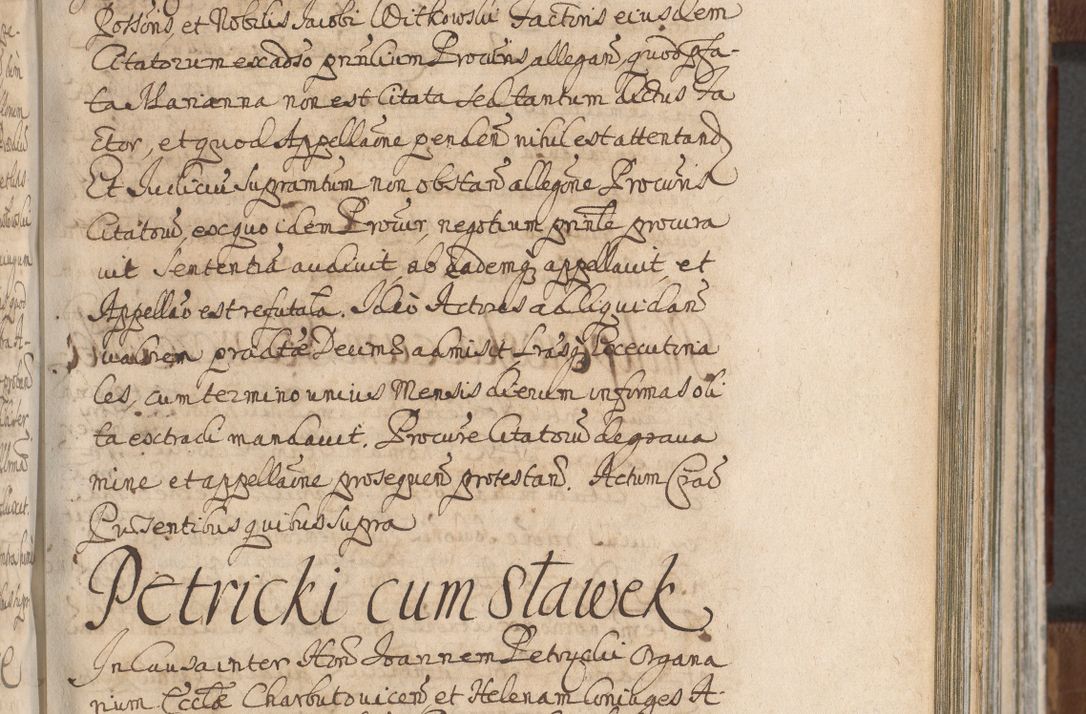 Possoris, et Nobilis Jacobi Witkowski Factoris eiusdem
Citatorum ex adso prntium Procuris allegan quod pfa-
ta Marianna non est Citata sed tantum dictus Fa
ctor, et quod Appellaone penden nihil est attentand
Et Iudiciu supramtum non obstan allegone Procuris
Citatoru, ex quo idem Procur, negotium prinle procura
uit Sententia audiuit ab eademq appellauit, et
Appellao est refutata. Ideo Actores ad liquidan
ualorem praedtae Decimae admisit Lrasq Execution a
les, cum termino unius Mensis dierum in forma soli
ta extradi mandauit. Procure Citatoru de graua
mine et appellaone prosequen protestan. Actum Crac
Praesentibus quibus supra
Petricki cum Sławek
In Causa inter Hon Joannem Petrycki Organa
rium Ecclae Charbutovicen et Helenam Coniuges A-